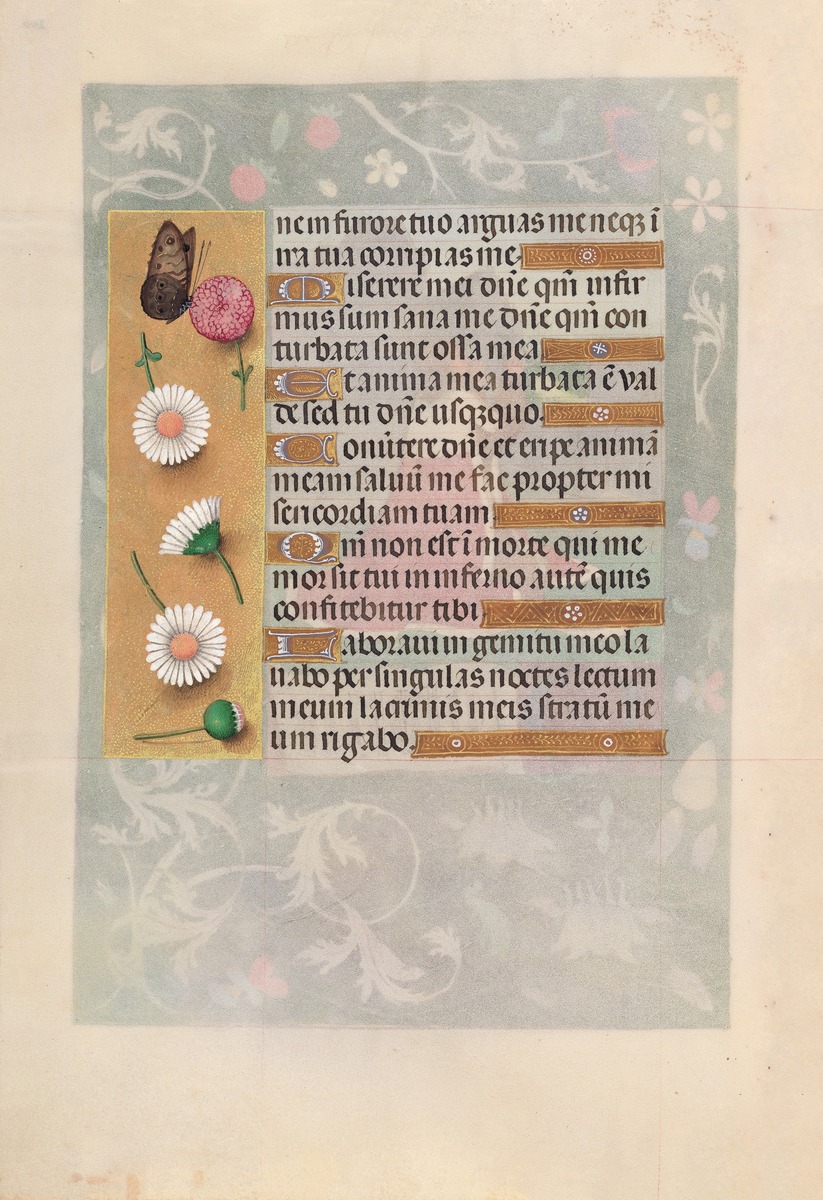 ne in furore tuo arguas me neqꝫ ī
ira tua corripias me.
Miserere mei dñe qm̄ infir
mus sum sana me dñe qm̄ con
turbata sunt ossa mea
Et anima mea turbata ē val
de sed tu dñe usqꝫquo.
Conūtere dñe et eripe animā
meam saluū me fac propter mi
sericordiam tuam.
Qm̄ non est ī morte qui me
mor sit tui in inferno autē quis
confitebitur tibi
Laboraui in gemitu meo la
uabo per singulas noctes lectum
meum lacrimis meis stratū me
um rigabo.